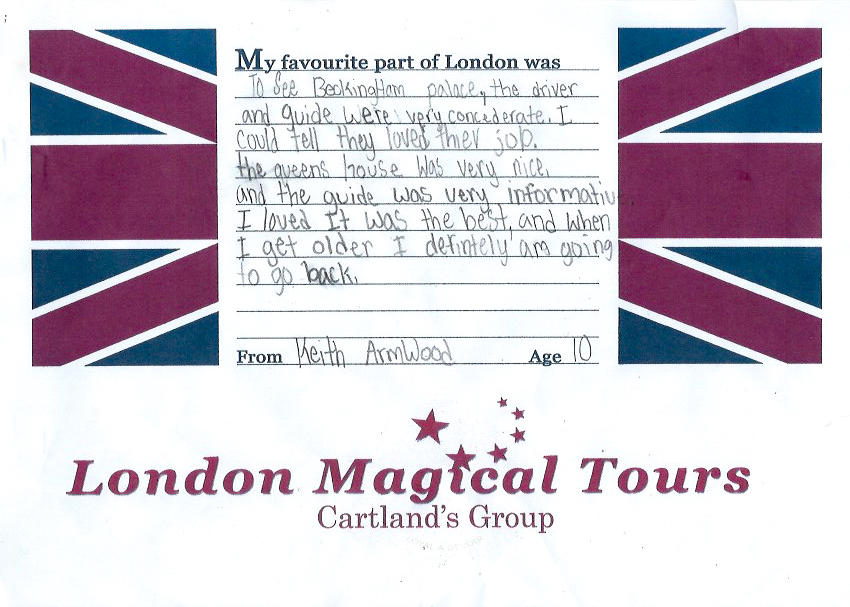 My favourite part of London was
To See Beckingham palace, the driver
and guide were very concederate. I
could tell they loved thier job.
the queens house was very nice,
and the guide was very informativ
I loved It was the best, and when
I get older I defintely am going
to go back.
From Keith ArmWood Age 10
London Magical Tours
Cartland's Group